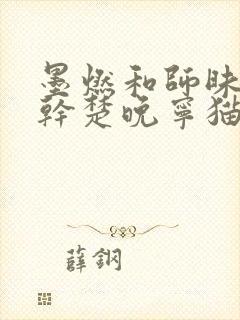 墨燃和師昧
幹楚晚寧猫
薛鋼